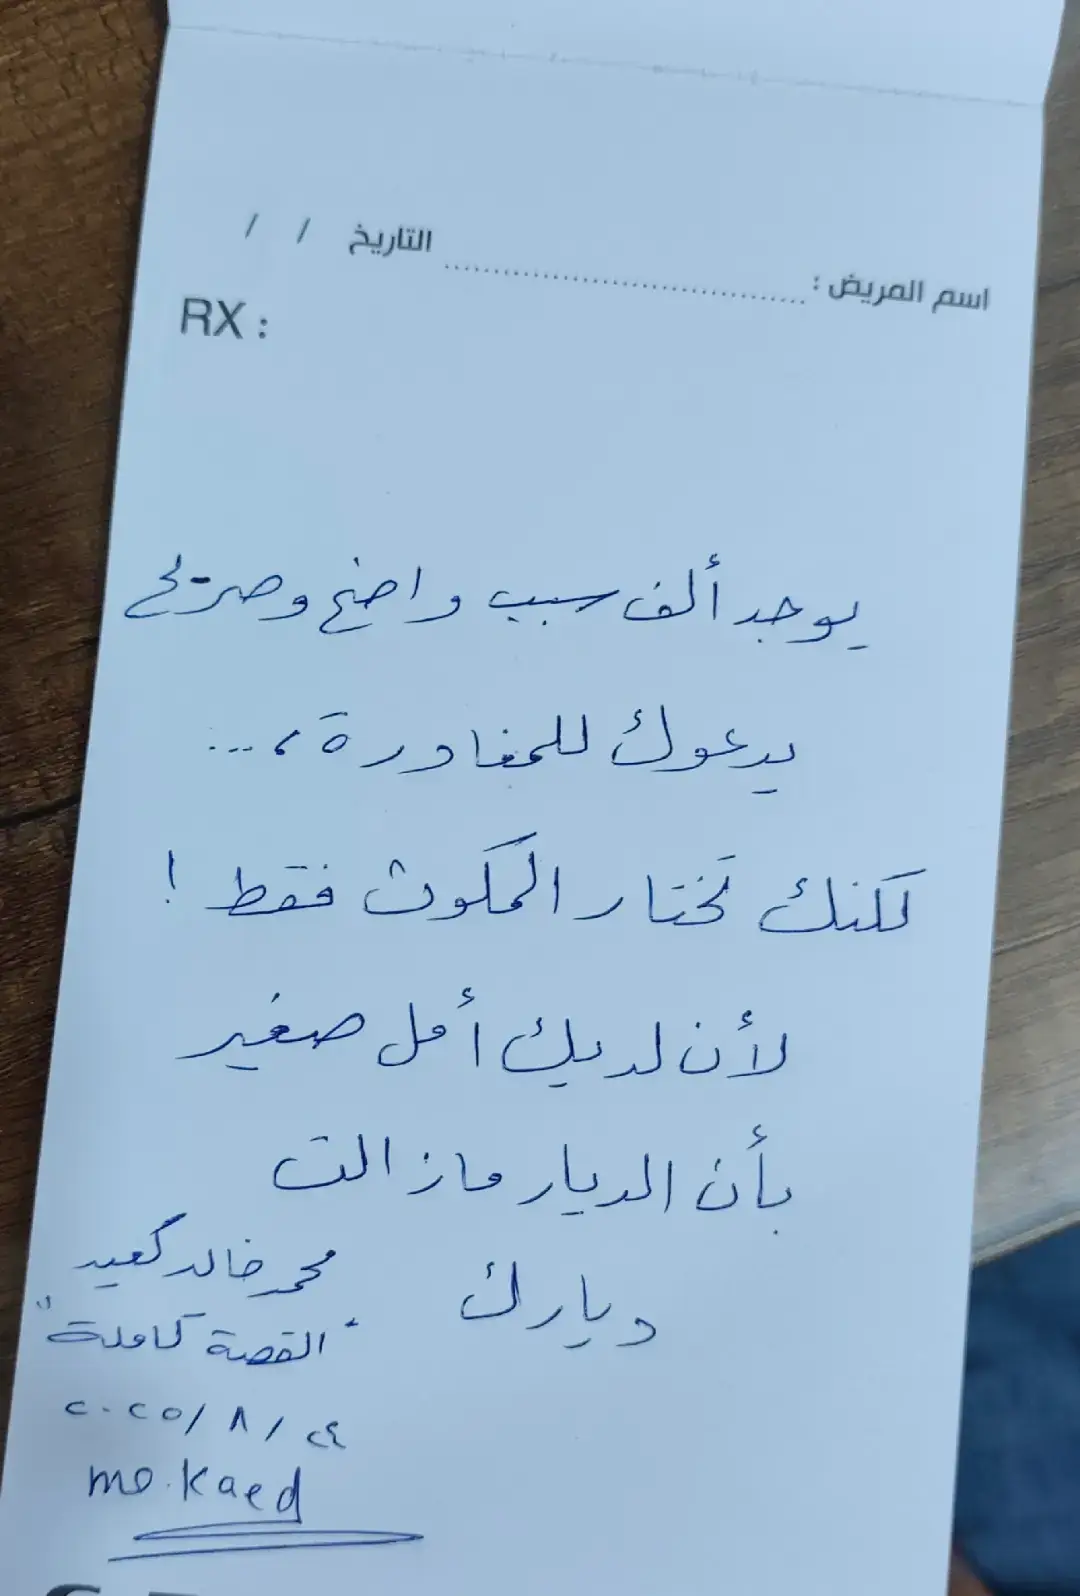 اسم المريض : .......................................... التاريخ / /
RX :
يوجد ألف سبب واضح وصريح
يدعوك للمغادرة ، ...
لكنك تختار المكوث فقط !
لأن لديك أمل صغير
بأن الديار مازالت
ديارك
محمد خالد كعيد
"القصة كاملة"
٢٠٢٥/٨/٢٤
mo.kaed